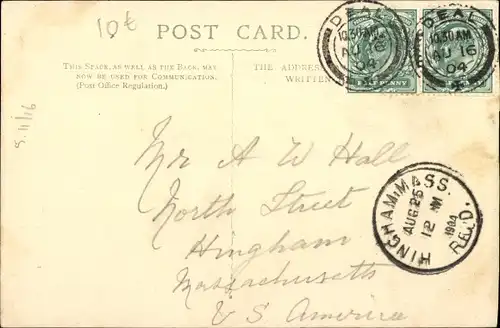 10€
POST CARD.
THIS SPACE, AS WELL AS THE BACK, MAY
NOW BE USED FOR COMMUNICATION.
(Post Office Regulation.)
THE ADDRESS
WRITTEN
DEAL
10.30 AM
AU 16
04
HALFPENNY
DEAL
10.30 AM
AU 16
04
Mr A W Hall
North Street
Hingham
Massachusetts
U S America
HINGHAM, MASS.
AUG 25
12 M
1904
REC'D.